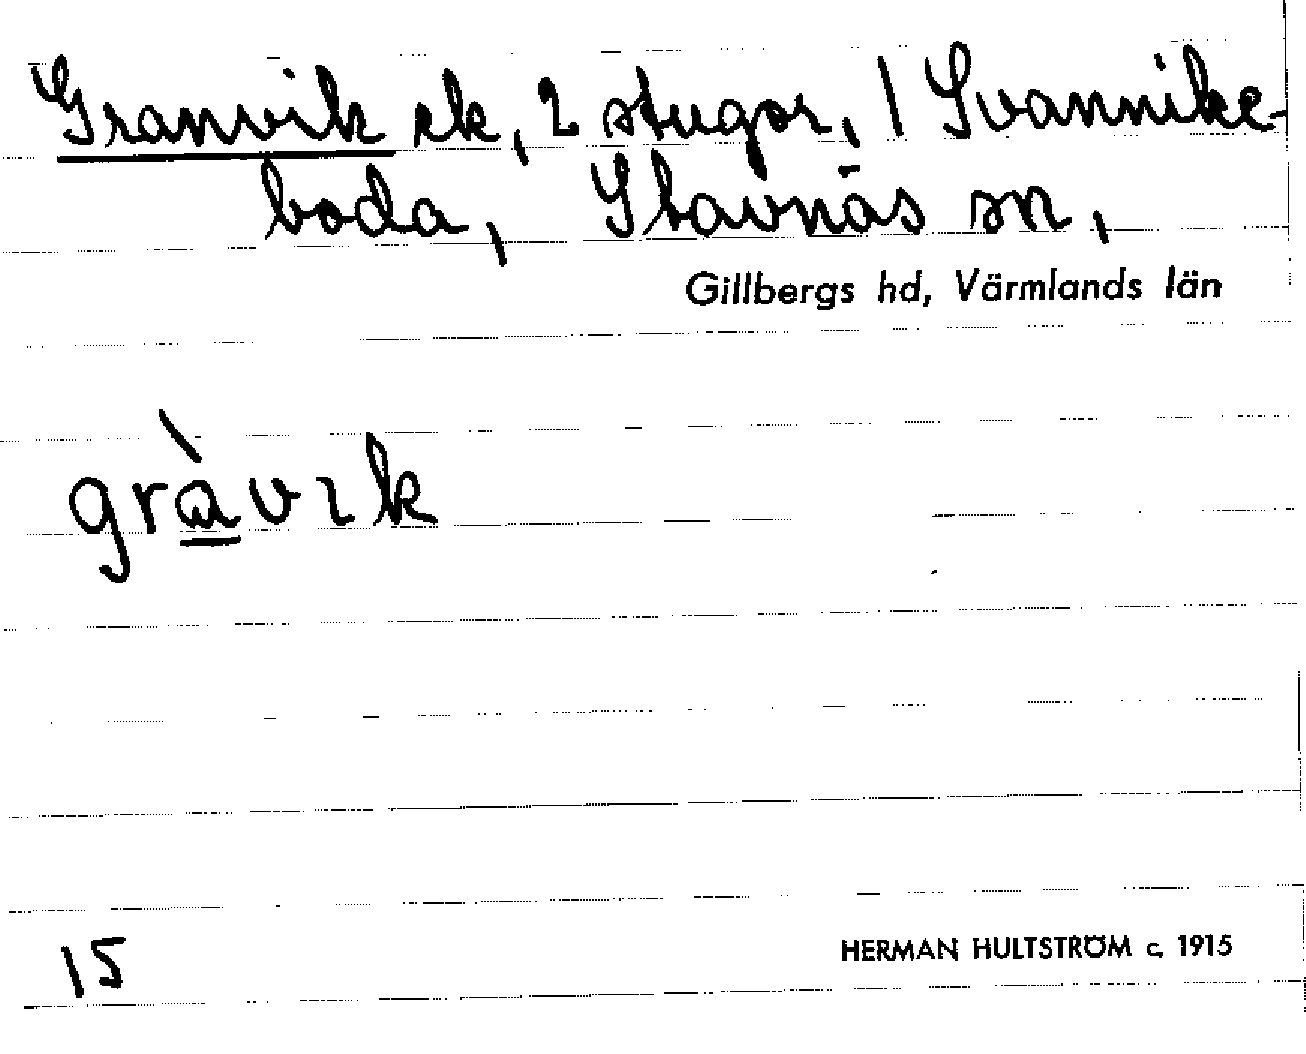 Granvik ek, 2 stugor, 1 Svannike-
boda, Stavnäs sn,
Gillbergs hd, Värmlands län
gràvɩk
15
HERMAN HULTSTRÖM c. 1915